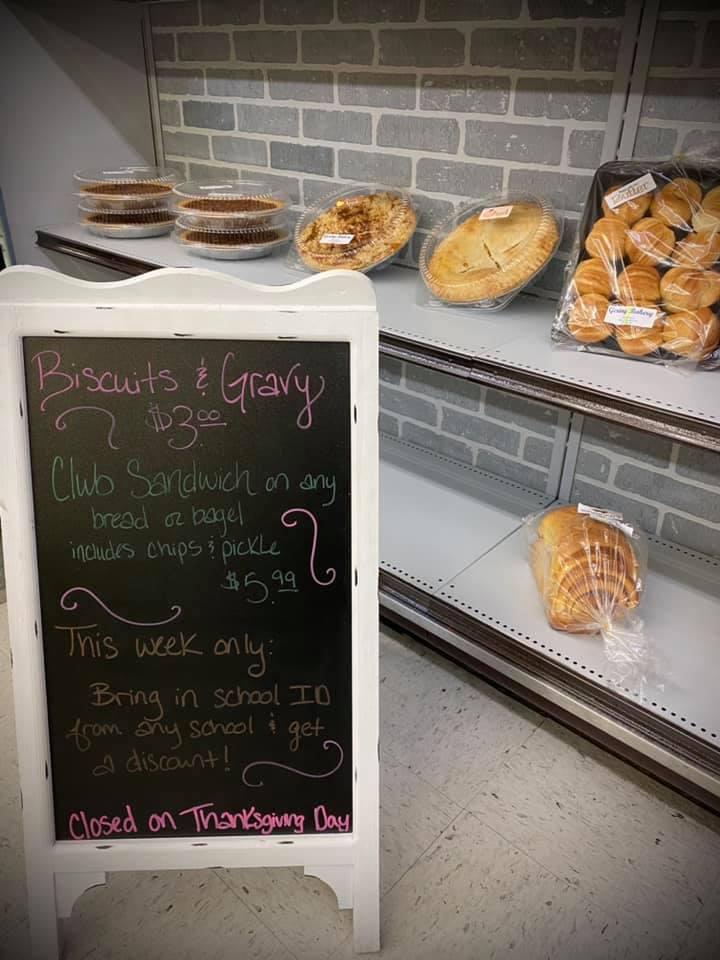 Biscuits & Gravy
$3.00
Club Sandwich on any
bread or bagel
includes chips & pickle
$5.99
This week only:
Bring in school ID
from any school & get
a discount!
Closed on Thanksgiving Day
Gering Bakery